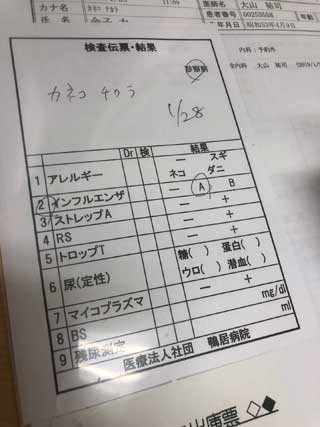 カナ名
医師名 大山 祐司
患者番号 00253558
氏 名
年月日 昭和53年4月9日
年齢
科：予約外
内科 大山 祐司
検査伝票・結果
診察前
カネコ チクラ
1/28
Dr 検 結果
1 アレルギー － スギ
ネコ ダニ
2 インフルエンザ － A B
3 ストレップA － ＋
4 RS － ＋
5 トロップT － ＋
6 尿(定性) 糖( ) 蛋白( )
ウロ( ) 潜血( )
7 マイコプラズマ － ＋
8 BS mg/dl
9 残尿測定 ml
医療法人社団 鴨居病院